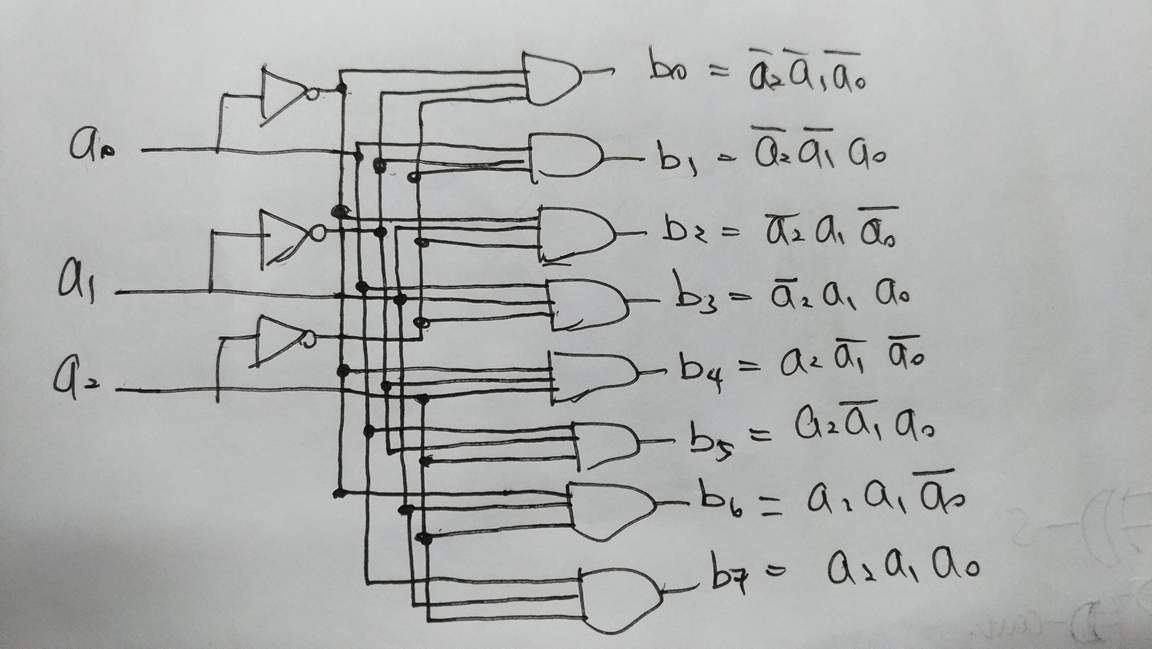 a₀
a₁
a₂
b₀ = a̅₂ a̅₁ a̅₀
b₁ = a̅₂ a̅₁ a₀
b₂ = a̅₂ a₁ a̅₀
b₃ = a̅₂ a₁ a₀
b₄ = a₂ a̅₁ a̅₀
b₅ = a₂ a̅₁ a₀
b₆ = a₂ a₁ a̅₀
b₇ = a₂ a₁ a₀